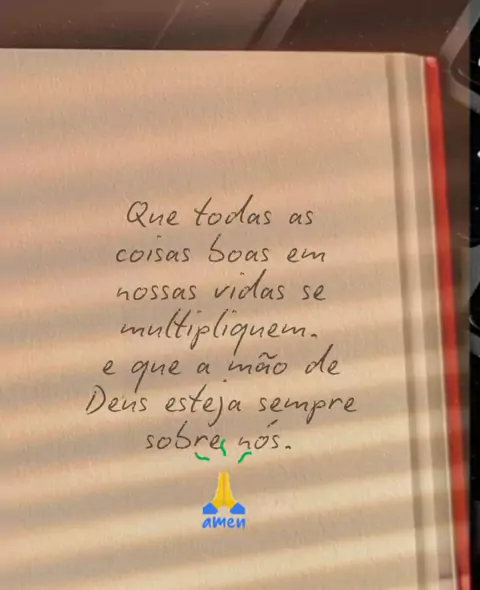 Que todas as
coisas boas em
nossas vidas se
multipliquem.
e que a mão de
Deus esteja sempre
sobre nós.
amen